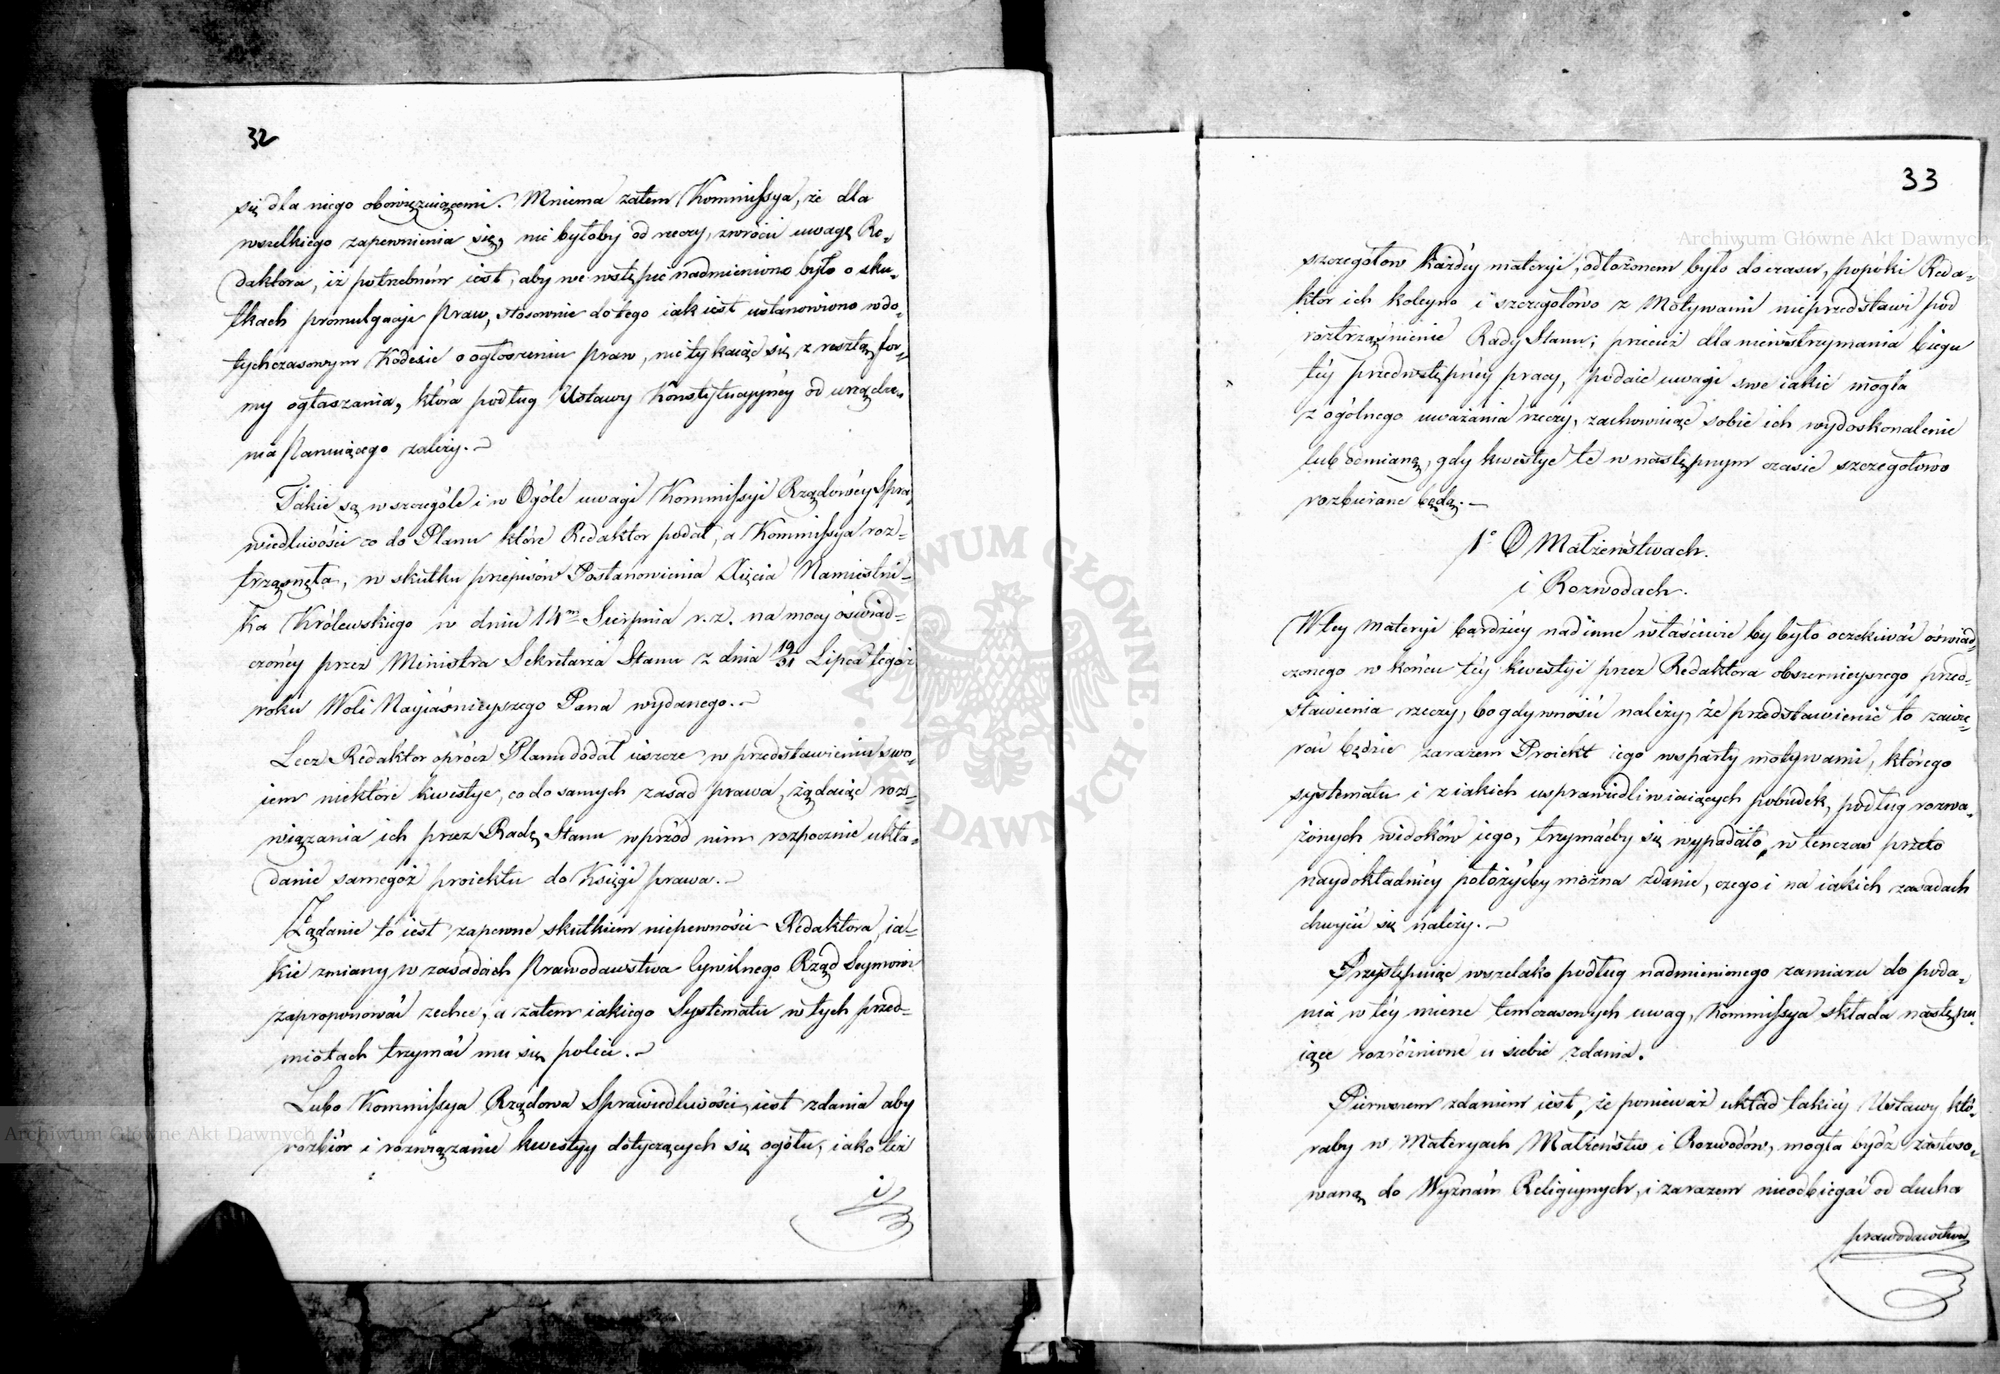 32
się dla niego obowięzuiącemi. Mniema zatem Kommissya, że dla
wszelkiego zapewnienia się, nie byłoby od rzeczy, zwrócić uwagę Re-
daktora, iż potrzebném iest, aby we wstępie nadmieniono było o sku-
tkach promulgacyi Praw, stosownie do tego iak iest ustanowiono w do-
tychczasowym Kodexie o ogłoszeniu praw, nie tykaiąc się z resztą for-
my ogłaszania, która podług Ustawy Konstytucyjnéy od urządze-
nia Panuiącego zależy.
Takie są w szczególe i w Ogóle uwagi Kommissyi Rządowéy Spra-
wiedliwości co do Planu które Redaktor podał, a Kommissya roz-
trząsnęła, w skutku przepisów Postanowienia Xięcia Namiestni-
ka Królewskiego w dniu 14m Sierpnia r. z. na mocy oświad-
czonéy przez Ministra Sekretarza Stanu z dnia 19/31 Lipca tegoż
roku Woli Nayiaśnieyszego Pana wydanego.
Lecz Redaktor oprócz Planu dodał ieszcze w przedstawieniu swo-
iem niektóre kwestye, co do samych zasad prawa, żądaiąc roz-
wiązania ich przez Radę Stanu wprzód nim rozpocznie ukła-
danie samegóż proiektu do Księgi prawa.
Żądanie to iest zapewne skutkiem niepewności Redaktora, ia-
kie zmiany w zasadach Prawodawstwa Cywilnego Rząd Seymowi
zaproponować zechce, a zatem iakiego Systematu w tych przed-
miotach trzymać mu się poleci.
Lubo Kommissya Rządowa Sprawiedliwości, iest zdania aby
rozbiór i rozwiązanie kwestyy dotyczących się ogółu, iako też
i
33
szczegółow każdéy materyi, odłożonem było do czasu, popóki Reda-
ktor ich koleyno i szczegółowo z Motywami nieprzedstawi pod
roztrząśnienie Rady Stanu; przecież dla niewstrzymania biegu
téy przedwstępnéy pracy, podaie uwagi swe iakie mogła
z ogólnego uważania rzeczy, zachowuiąc sobie ich wydoskonalenie
lub odmianę, gdy kwestye te w następnym czasie szczegółowo
rozbierane będą.
1° O Małżeństwach.
i Rozwodach.
W tey Materyi bardziéy nad inne właściwie by było oczekiwać oświad-
czonego w końcu téy kwestyi przez Redaktora obszernieyszego przed-
stawienia rzeczy, bo gdy wnosić należy, że przedstawienie to zawie-
rać będzie zarazem Proiekt iego wsparty motywami, którego
systematu i z iakich usprawiedliwiaiących pobudek, podług rozwa-
żonych widoków iego, trzymaćby się wypadało, w tenczas przeto
naydokładniéy położyćby można zdanie, czego i na iakich zasadach
chwycić się należy.
Przystępuiąc wszelako podług nadmienionego zamiaru do poda-
nia w téy mierze temczasowych uwag, Kommissya składa następu-
iące rozróżnione u siebie zdania.
Pierwszem zdaniem iest, że ponieważ układ takiéy Ustawy któ-
raby w Materyach Małżeństw i Rozwodów, mogła bydź zastoso-
waną do Wyznań Religiynych, i zarazem nieodbiegać od ducha
prawodawstwa
Archiwum Główne Akt Dawnych
Archiwum Główne Akt Dawnych
ARCHIWUM GŁÓWNE AKT DAWNYCH